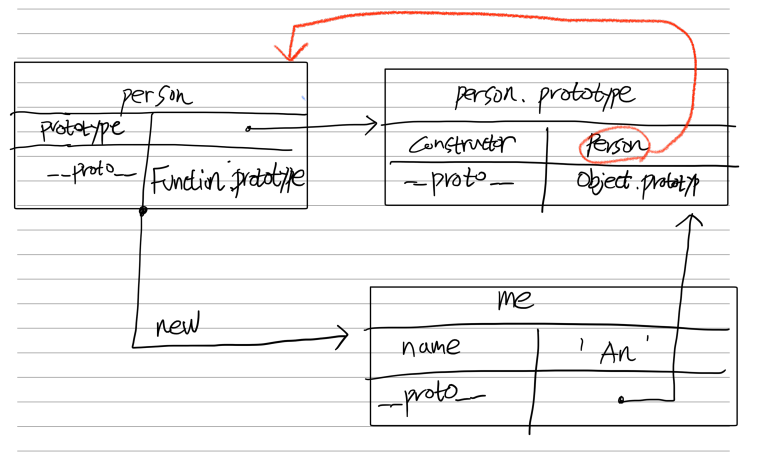 person
prototype
__proto__ Function.prototype
person. prototype
Constructor Person
__proto__ Object.prototyp
new
me
name 'An'
__proto__